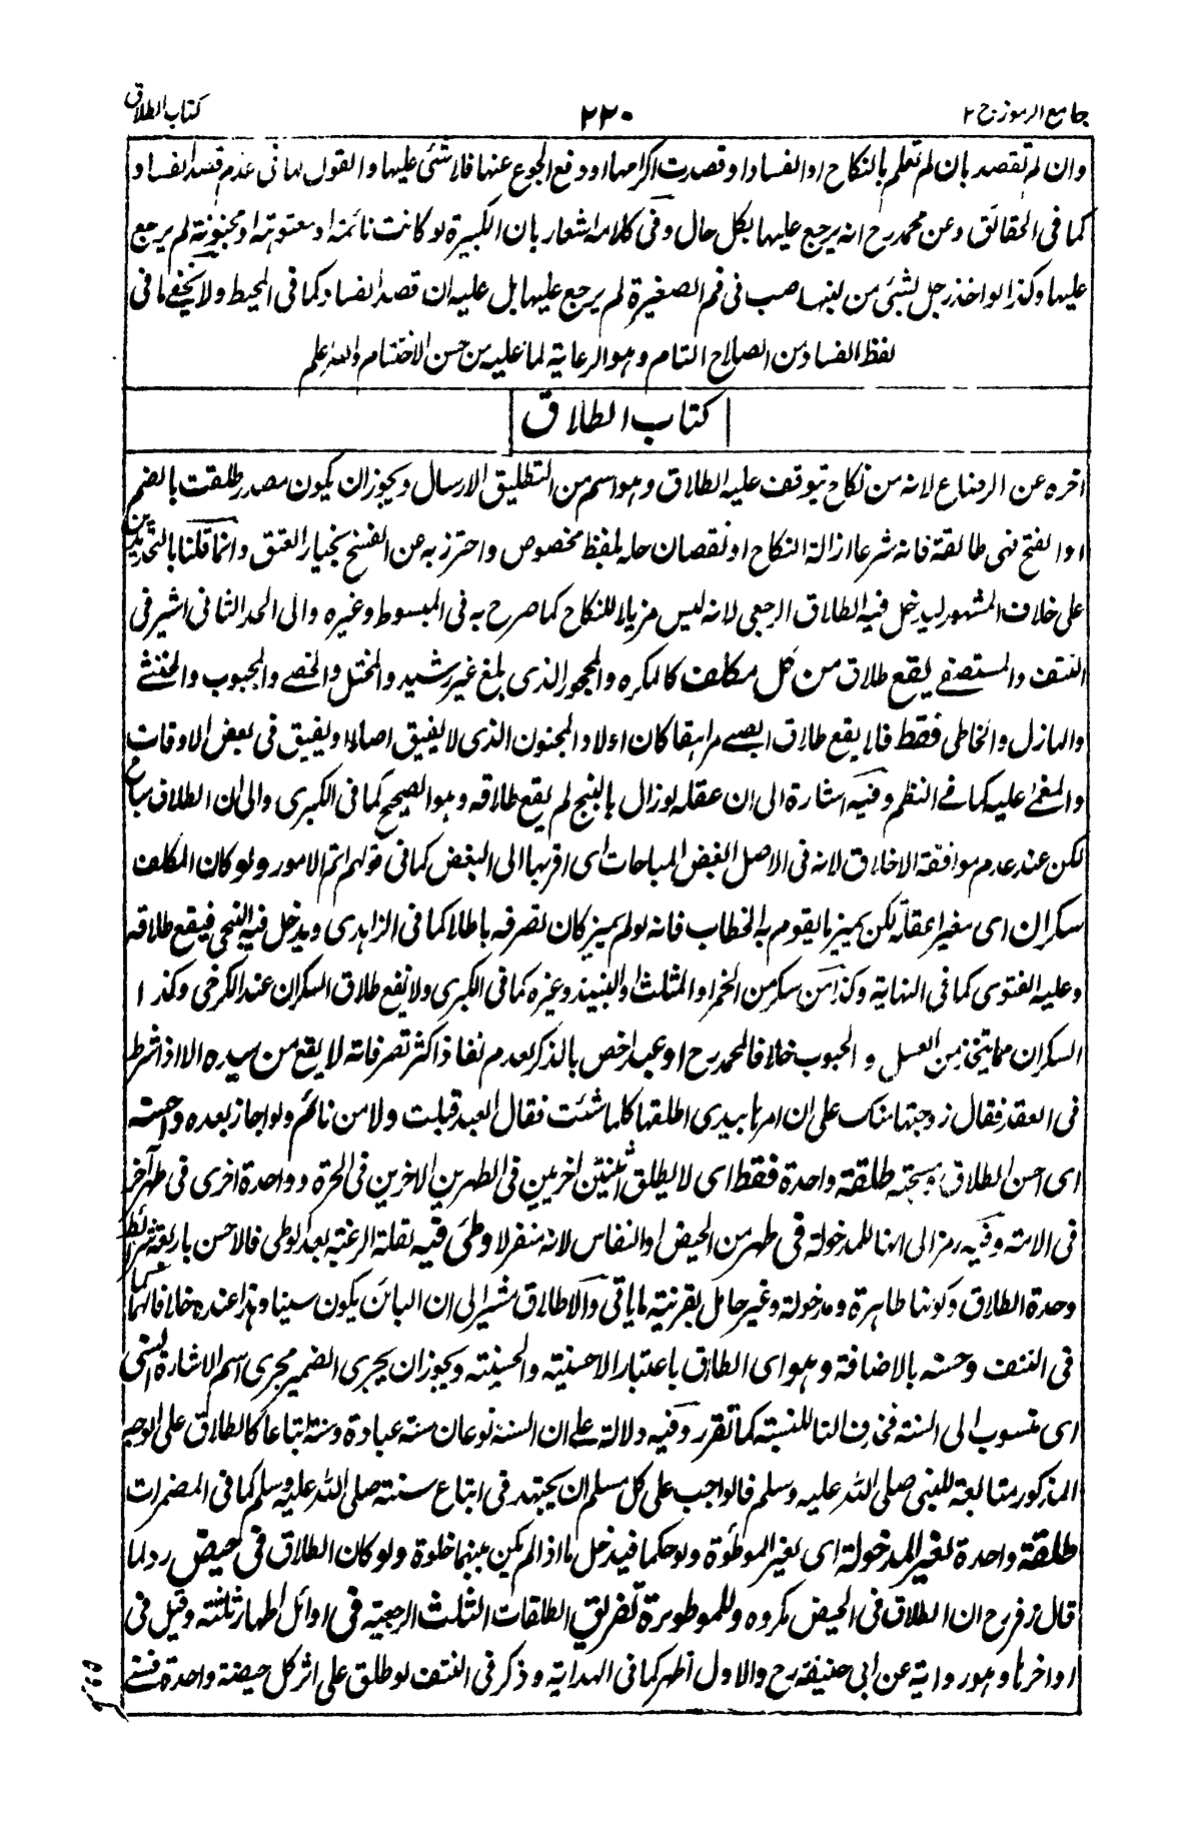 جامع الرموز ج ٢
٢٢٠
كتاب الطلاق
وان لم تقصد بان لم تعلم بالنكاح او الفساد او قصدت اكرامها او دفع الجوع عنها فلا شئ عليها والقول لها فى عدم قصد الفساد و
كما فى الحقائق وعن محمد رح انه يرجع عليها بكل حال وفى كلامه اشعار بان الكبيرة لو كانت نائمة او معتوهة او مجنونة لم يرجع
عليها وكذا لو اخذ رجل بشئ من لبنها صب فى فم الصغيرة لم يرجع عليها بل عليه ان قصد الفساد كما فى المحيط ولا يخفے ما فى
لفظ الفساد من الصلاح التام وهو الرعاية لما عليه من حسن الاختتام والله اعلم
كتاب الطلاق
اخره عن الرضاع لانه من نكاح يتوقف عليه الطلاق وهو اسم من التطليق الارسال ويجوز ان يكون مصدر طلقت بالضم
او الفتح فهى طالقة فانه شرعا ازالة النكاح او نقصان حله بلفظ مخصوص واحترز به عن الفسخ بخيار العتق وانما قلنا بالتحديدين
على خلاف المشهور ليدخل فيه الطلاق الرجعى لانه ليس مزيلا للنكاح كما صرح به فى المبسوط وغيره والى الحد الثانى اشير فى
النتف والمستصفے يقع طلاق من كل مكلف كالمكره والمحجور الذى بلغ غير رشيد والمختل والخصے والمجبوب والخنثے
والهازل والخاطى فقط فلا يقع طلاق الصبے مراهقا كان اولا والمجنون الذى لا يفيق اصلا او يفيق فى بعض الاوقات
والمغمے عليه كما فے النظم وفيه اشارة الى ان عقله لو زال بالبنج لم يقع طلاقه وهو الصحيح كما فى الكبرى والى ان الطلاق مباح
لكن عند عدم موافقة الاخلاق لانه فى الاصل ابغض المباحات اى اقربها الى البغض كما فى قولهم اتم الامور ولو كان المكلف
سكران اى مغيرا عقله لكن يميز ما يقوم به الخطاب فانه لو لم يميز كان تصرفه باطلا كما فى الزاهدى ويدخل فيه البنجى فيقع طلاقه
وعليه الفتوى كما فى النهاية وكذا من سكر من الخمر او المثلث او النبيذ وغيره كما فى الكبرى ولا يقع طلاق السكران عند الكرخى وكذا
السكران مما يتخذ من العسل و الحبوب خلافا لمحمد رح او عبد اخص بالذكر لعدم نفاذ اكثر تصرفاته لا يقع من سيده الا اذا شرط
فى العقد فقال زوجتها منك على ان امرها بيدى اطلقها كلما شئت فقال العبد قبلت ولا من نائم ولو اجاز بعده واحسنه
اى احسن الطلاق طلقة واحدة فقط اى لا يطلق ثنتين اخريين فى الطهرين الاخرين فى الحرة وواحدة اخرى فى طهر آخر
فى الامة وفيه رمز الى انها للمدخولة فى طهر من الحيض او النفاس لانه منفر لا وطئ فيه لقلة الرغبة بعد الوطى فالاحسن باربعة شرائط
وحدة الطلاق وكونها طاهرة ومدخولة وغير حامل بقرينة ما ياتى والاطلاق مشير الى ان البائن يكون سنيا وهذا عنده خلافا لهما كما
فى النتف وحسنه بالاضافة وهو اى الطلاق باعتبار الاحسنية والحسنية ويجوز ان يجرى الضمير مجرى اسم الاشارة السنى
اى منسوب الى السنة فحذف التا للنسبة كما تقرر وفيه دلالة علے ان السنة نوعان سنة عبادة وسنة اتباعا كالطلاق على الوجه
المذكور متابعة للنبى صلى الله عليه وسلم فالواجب على كل مسلم ان يجتهد فى اتباع سنته صلى الله عليه وسلم كما فى المضمرات
طلقة واحدة لغير المدخولة اى لغير الموطوءة ولو حكما فيدخل ما اذا لم يكن بينهما خلوة ولو كان الطلاق فى حيض رد لما
قال زفر رح ان الطلاق فى الحيض مكروه وللموطوءة تفريق الطلقات الثلث الرجعية فى اوائل اطهار ثلثة وقيل فى
اواخرها وهو رواية عن ابى حنيفة رح والاول اظهر كما فى الهداية وذكر فى النتف لو طلق على اثر كل حيضة واحدة